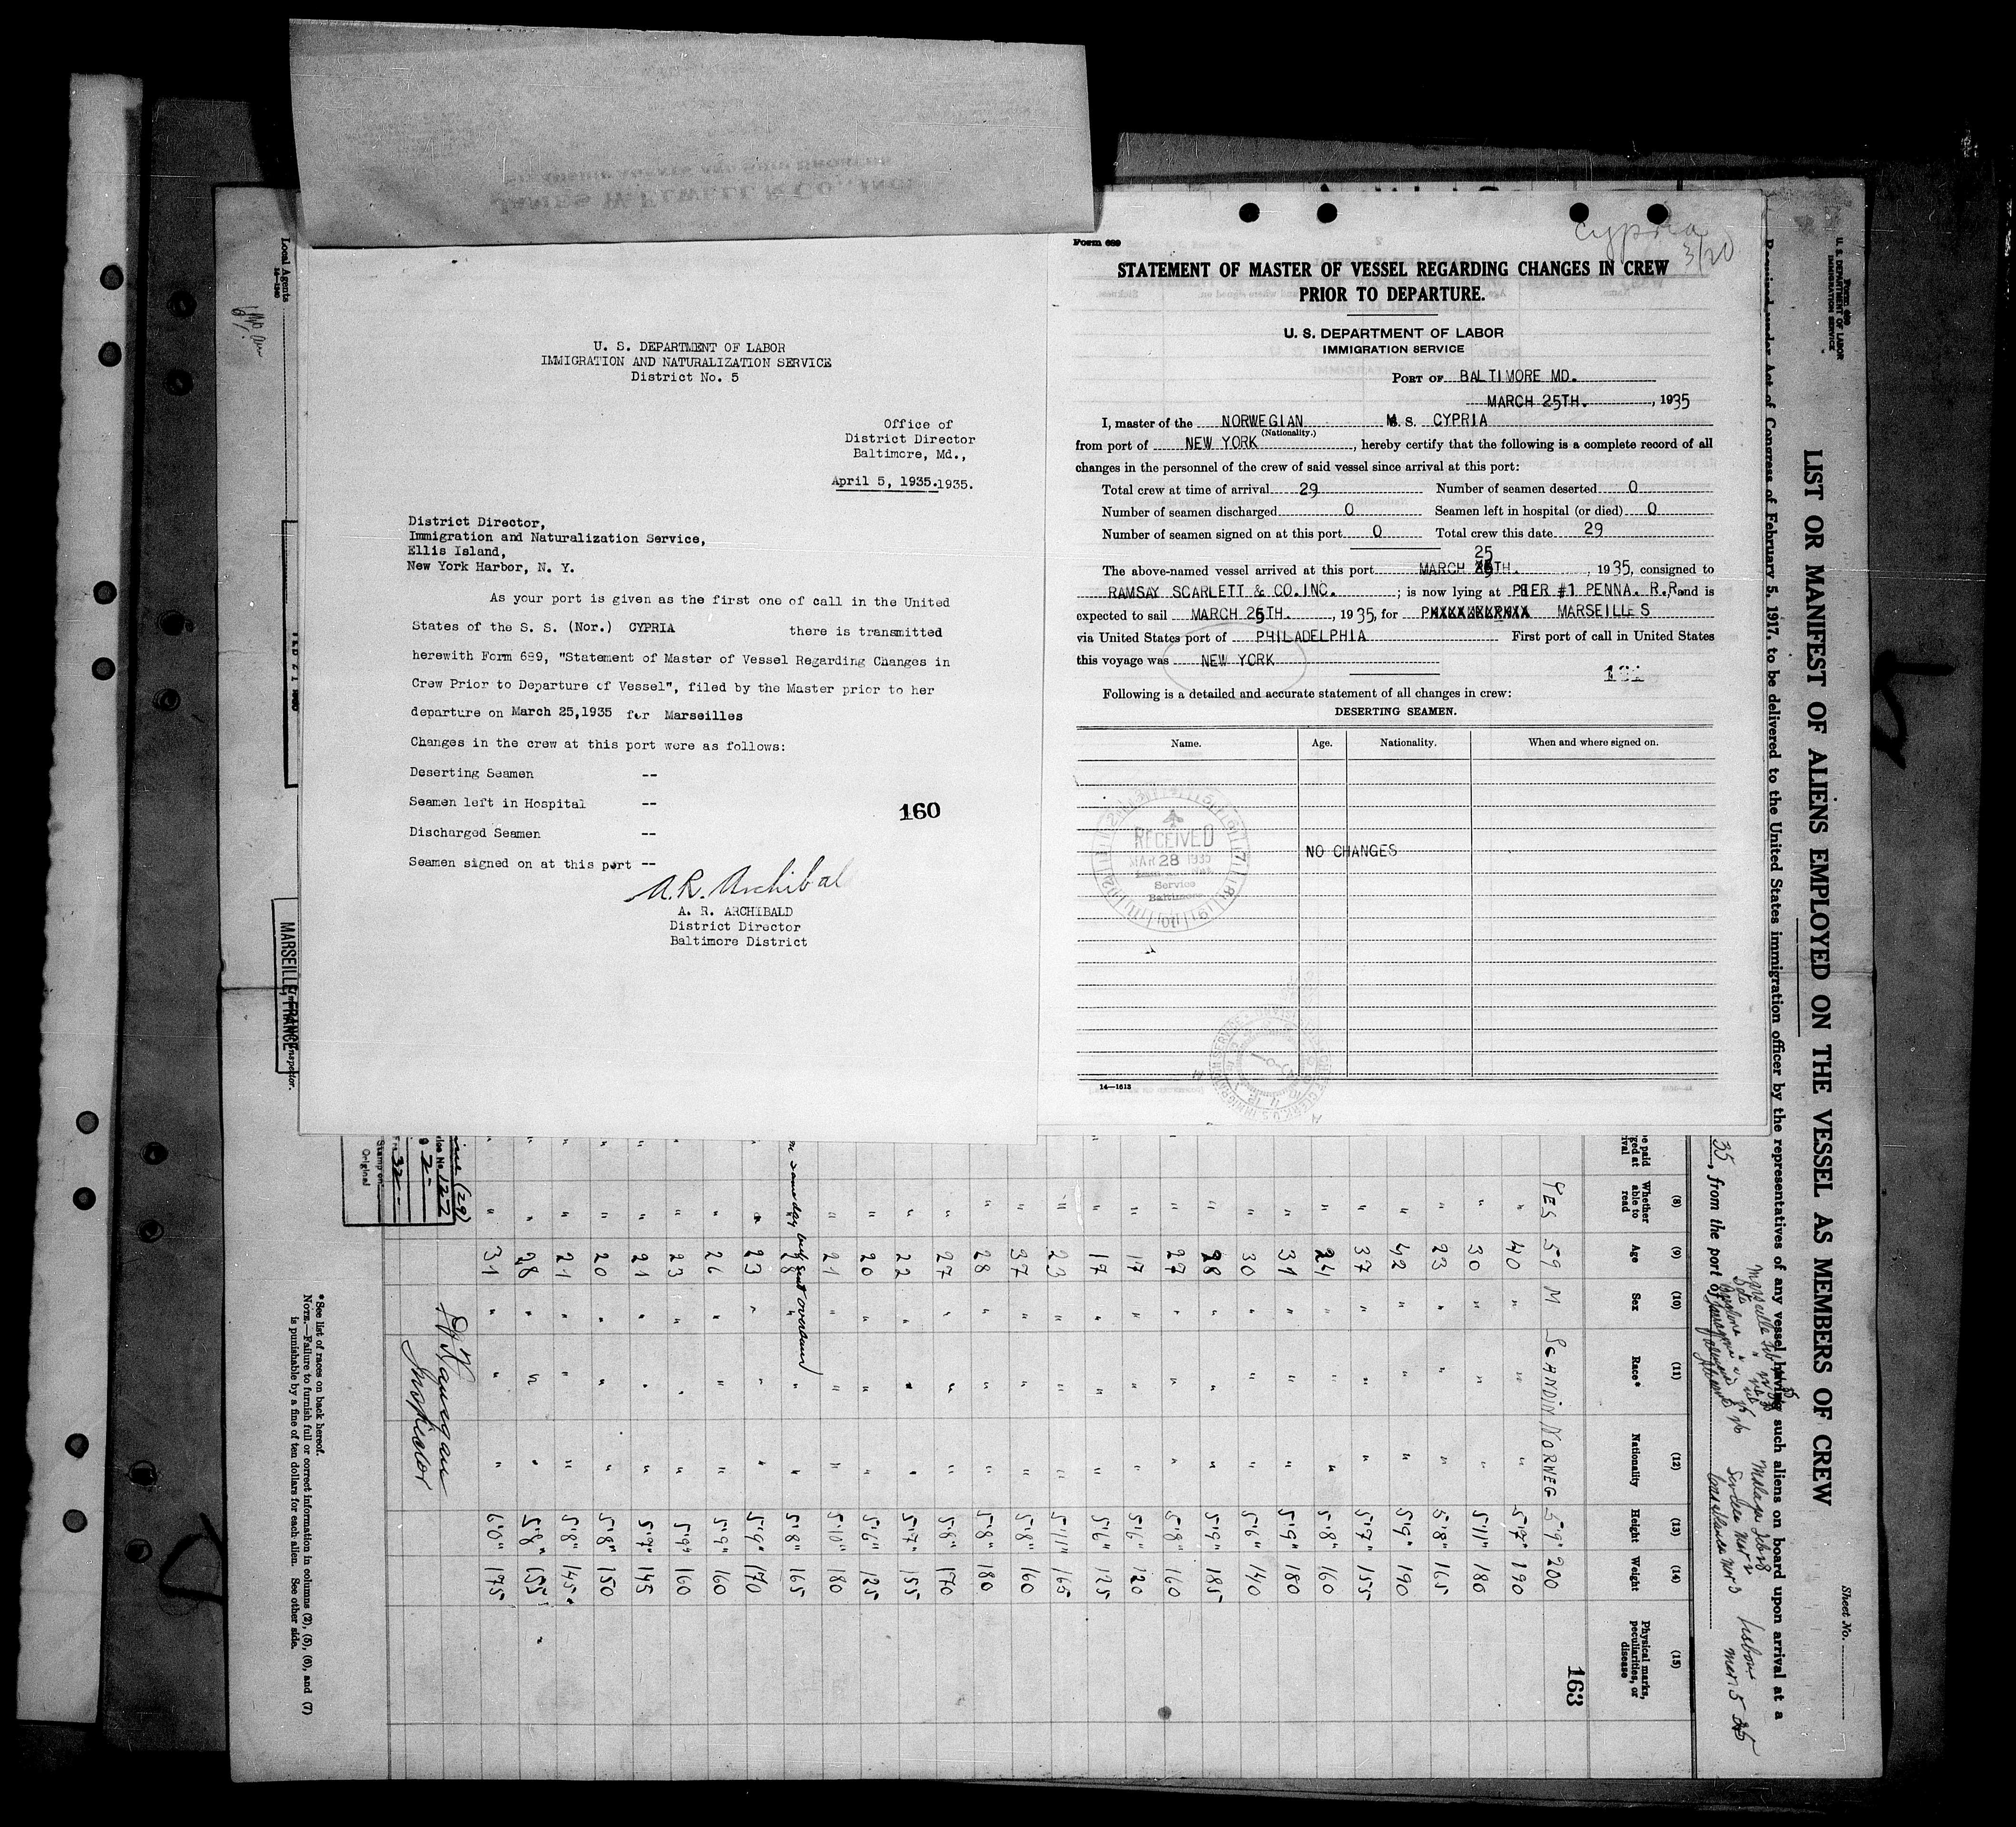 JAMES W. ELWELL & CO., INC.
U. S. DEPARTMENT OF LABOR
IMMIGRATION AND NATURALIZATION SERVICE
District No. 5
Office of
District Director
Baltimore, Md.,
April 5, 1935.1935.
District Director,
Immigration and Naturalization Service,
Ellis Island,
New York Harbor, N. Y.
As your port is given as the first one of call in the United
States of the S. S. (Nor.) CYPRIA there is transmitted
herewith Form 689, "Statement of Master of Vessel Regarding Changes in
Crew Prior to Departure of Vessel", filed by the Master prior to her
departure on March 25,1935 for Marseilles
Changes in the crew at this port were as follows:
Deserting Seamen --
Seamen left in Hospital --
Discharged Seamen --
Seamen signed on at this port --
160
A. R. Archibal
A. R. ARCHIBALD
District Director
Baltimore District
Cypria
3/20
Form 689
STATEMENT OF MASTER OF VESSEL REGARDING CHANGES IN CREW
PRIOR TO DEPARTURE.
U. S. DEPARTMENT OF LABOR
IMMIGRATION SERVICE
PORT OF BALTIMORE MD.
MARCH 25TH. , 1935
I, master of the NORWEGIAN M. S. CYPRIA
(Nationality.)
from port of NEW YORK , hereby certify that the following is a complete record of all
changes in the personnel of the crew of said vessel since arrival at this port:
Total crew at time of arrival 29 Number of seamen deserted 0
Number of seamen discharged 0 Seamen left in hospital (or died) 0
Number of seamen signed on at this port 0 Total crew this date 29
25
The above-named vessel arrived at this port MARCH TH. , 1935, consigned to
RAMSAY SCARLETT & CO.INC. ; is now lying at PIER #1 PENNA. R.R and is
expected to sail MARCH 25TH. , 1935, for MARSEILLES
via United States port of PHILADELPHIA First port of call in United States
this voyage was NEW YORK
Following is a detailed and accurate statement of all changes in crew:
DESERTING SEAMEN.
Name. Age. Nationality. When and where signed on.
NO CHANGES
RECEIVED
MAR 28 1935
Service
Baltimore
14—1613
Form 689
U. S. DEPARTMENT OF LABOR
IMMIGRATION SERVICE
Sheet No.
LIST OR MANIFEST OF ALIENS EMPLOYED ON THE VESSEL AS MEMBERS OF CREW
Required under Act of Congress of February 5, 1917, to be delivered to the United States immigration officer by the representatives of any vessel having such aliens on board upon arrival at a
35, from the port of
(8) (9) (10) (11) (12) (13) (14) (15)
Whether able to read Age Sex Race* Nationality Height Weight Physical marks, peculiarities, or disease
163
YES 59 M SCANDIN NORWEG 5'9" 200
" 40 " " " 5'7" 190
" 30 " " " 5'11" 180
" 23 " " " 5'8" 165
" 42 " " " 5'9" 190
" 37 " " " 5'7" 155
" 24 " " " 5'8" 160
" 31 " " " 5'9" 180
" 30 " " " 5'6" 140
" 28 " " " 5'9" 185
" 27 " " " 5'8" 160
" 17 " " " 5'6" 120
" 17 " " " 5'6" 125
" 23 " " " 5'11" 165
" 37 " " " 5'8" 160
" 28 " " " 5'8" 180
" 27 " " " 5'8" 170
" 22 " " " 5'7" 155
" 20 " " " 5'6" 125
" 21 " " " 5'10" 180
" 28 " " " 5'8" 165
" 23 " " " 5'9" 170
" 26 " " " 5'9" 160
" 23 " " " 5'9" 160
" 21 " " " 5'7" 145
" 20 " " " 5'8" 150
" 21 " " " 5'8" 145
" 28 " " " 5'8" 155
" 31 " " " 6'0" 175
Inspector
*See list of races on back hereof.
NOTE.—Failure to furnish full or correct information in columns (2), (5), (6), and (7)
is punishable by a fine of ten dollars for each alien. See other side.
Local Agents
MARSEILLE, FRANCE
Inspector.
Original